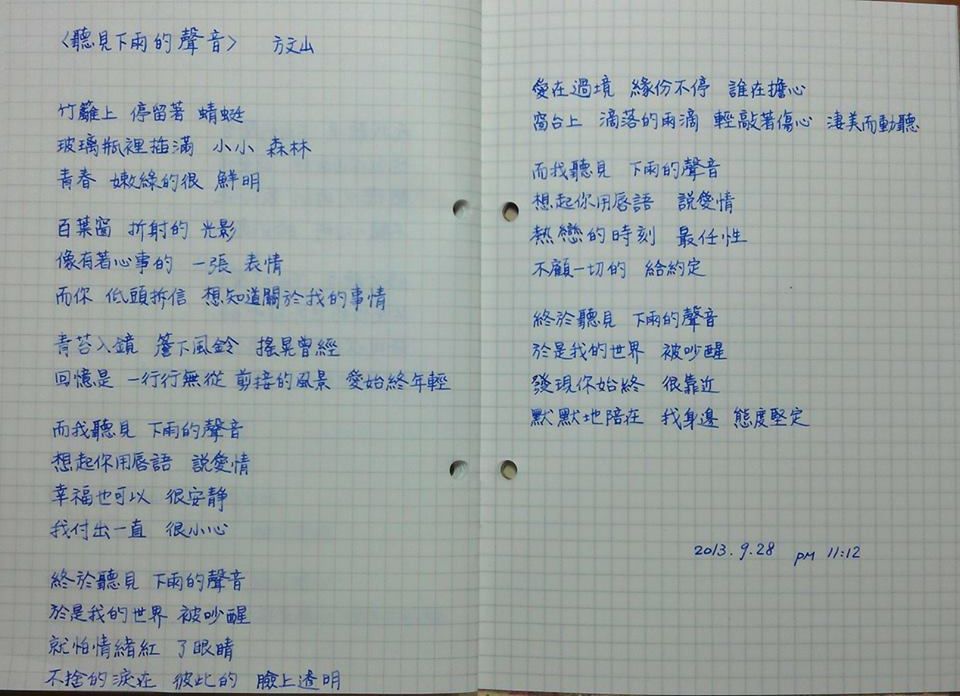 〈聽見下雨的聲音〉 方文山
竹籬上 停留著 蜻蜓
玻璃瓶裡插滿 小小 森林
青春 嫩綠的很 鮮明
百葉窗 折射的 光影
像有著心事的 一張 表情
而你 低頭拆信 想知道關於我的事情
青苔入鏡 簷下風鈴 搖晃曾經
回憶是 一行行無從 剪接的風景 愛始終年輕
而我聽見 下雨的聲音
想起你用唇語 說愛情
幸福也可以 很安靜
我付出一直 很小心
終於聽見 下雨的聲音
於是我的世界 被吵醒
就怕情緒紅 了眼睛
不捨的淚在 彼此的 臉上透明
愛在過境 緣份不停 誰在擔心
窗台上 滴落的雨滴 輕敲著傷心 淒美而動聽
而我聽見 下雨的聲音
想起你用唇語 說愛情
熱戀的時刻 最任性
不顧一切的 給約定
終於聽見 下雨的聲音
於是我的世界 被吵醒
發現你始終 很靠近
默默地陪在 我身邊 態度堅定
2013.9.28 PM 11:12